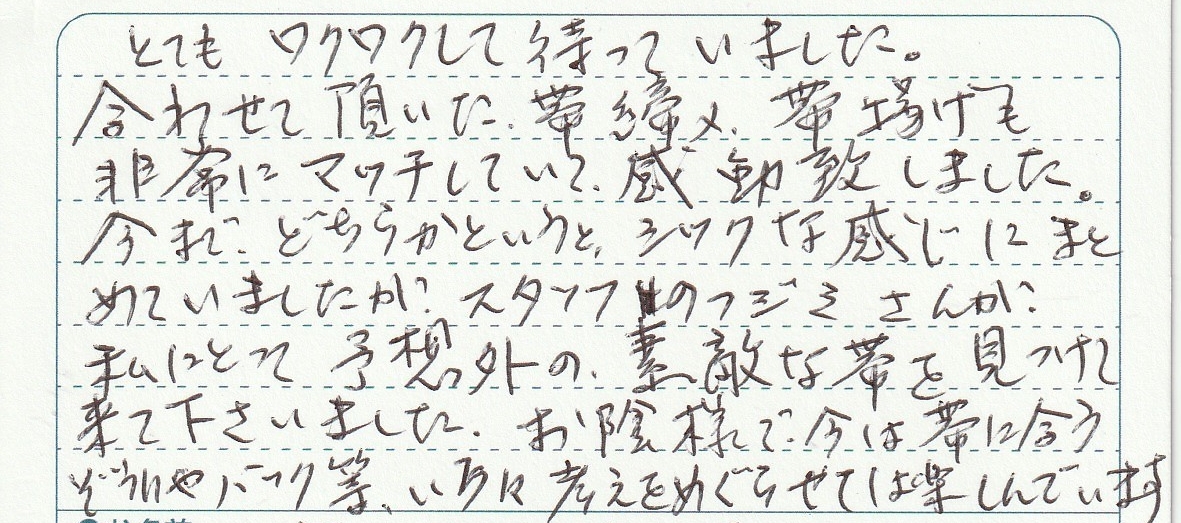 とても ワクワクして待っていました。
合わせて頂いた、帯締メ、帯揚げも
非常にマッチしていて、感動致しました。
今まで、どちらかというと、シックな感じにまと
めていましたが、スタッフのフジミさんが、
私にとって予想外の、素敵な帯を見つけて
来て下さいました。お陰様で、今は帯に合う
ぞうりやバック等、いろいろ考えをめぐらせては楽しんでいます